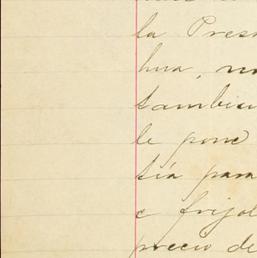 la Pres
hua, no
tambien
le pone
tía para
e frijol
precio de